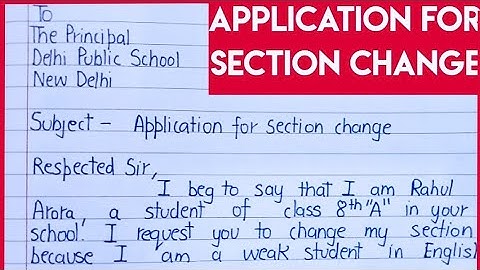 To
The Principal
Delhi Public School
New Delhi
APPLICATION FOR
SECTION CHANGE
Subject - Application for section change
Respected Sir,
I beg to say that I am Rahul
Arora, a student of class 8th "A" in your
school. I request you to change my section
because I am a weak student in English